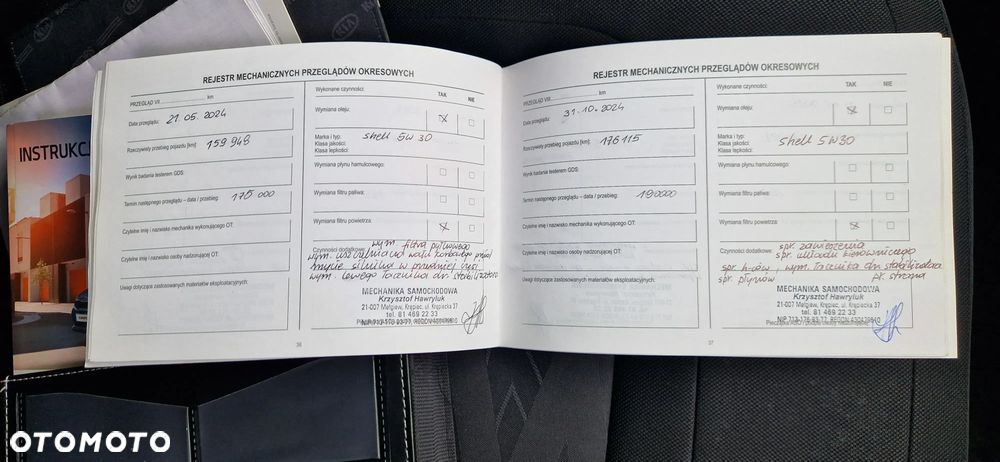 KIA
INSTRUKC
REJESTR MECHANICZNYCH PRZEGLĄDÓW OKRESOWYCH
PRZEGLĄD VII km
Data przeglądu: 21.05.2024
Rzeczywisty przebieg pojazdu [km]: 159 948
Wynik badania testerem GDS:
Termin następnego przeglądu – data / przebieg: 175 000
Czytelne imię i nazwisko mechanika wykonującego OT:
Czytelne imię i nazwisko osoby nadzorującej OT:
Uwagi dotyczące zastosowanych materiałów eksploatacyjnych:
Wykonane czynności: TAK NIE
Wymiana oleju:
Marka i typ: shell 5W30
Klasa jakości:
Klasa lepkości:
Wymiana płynu hamulcowego:
Wymiana filtru paliwa:
Wymiana filtru powietrza:
Czynności dodatkowe: wym. filtra pyłkowego
wym. uszczelniacza wału korbowego przód
mycie silnika w przedniej części
wym. lewego łącznika dr. stabilizatora
MECHANIKA SAMOCHODOWA
Krzysztof Hawryluk
21-007 Mełgiew, Krępiec, ul. Krępiecka 37
tel. 81 469 22 33
NIP 713-176-93-77, REGON 430479610
36
REJESTR MECHANICZNYCH PRZEGLĄDÓW OKRESOWYCH
PRZEGLĄD VIII km
Data przeglądu: 31.10.2024
Rzeczywisty przebieg pojazdu [km]: 176 115
Wynik badania testerem GDS:
Termin następnego przeglądu – data / przebieg: 190000
Czytelne imię i nazwisko mechanika wykonującego OT:
Czytelne imię i nazwisko osoby nadzorującej OT:
Uwagi dotyczące zastosowanych materiałów eksploatacyjnych:
Wykonane czynności: TAK NIE
Wymiana oleju:
Marka i typ: shell 5W30
Klasa jakości:
Klasa lepkości:
Wymiana płynu hamulcowego:
Wymiana filtru paliwa:
Wymiana filtru powietrza:
Czynności dodatkowe: spr. zawieszenia
spr. układu kierowniczego
spr. h-ców, wym. łącznika dr. stabilizatora
spr. płynów pr. strona
MECHANIKA SAMOCHODOWA
Krzysztof Hawryluk
21-007 Mełgiew, Krępiec, ul. Krępiecka 37
tel. 81 469 22 33
NIP 713-176-93-77, REGON 430479610
37
OTOMOTO